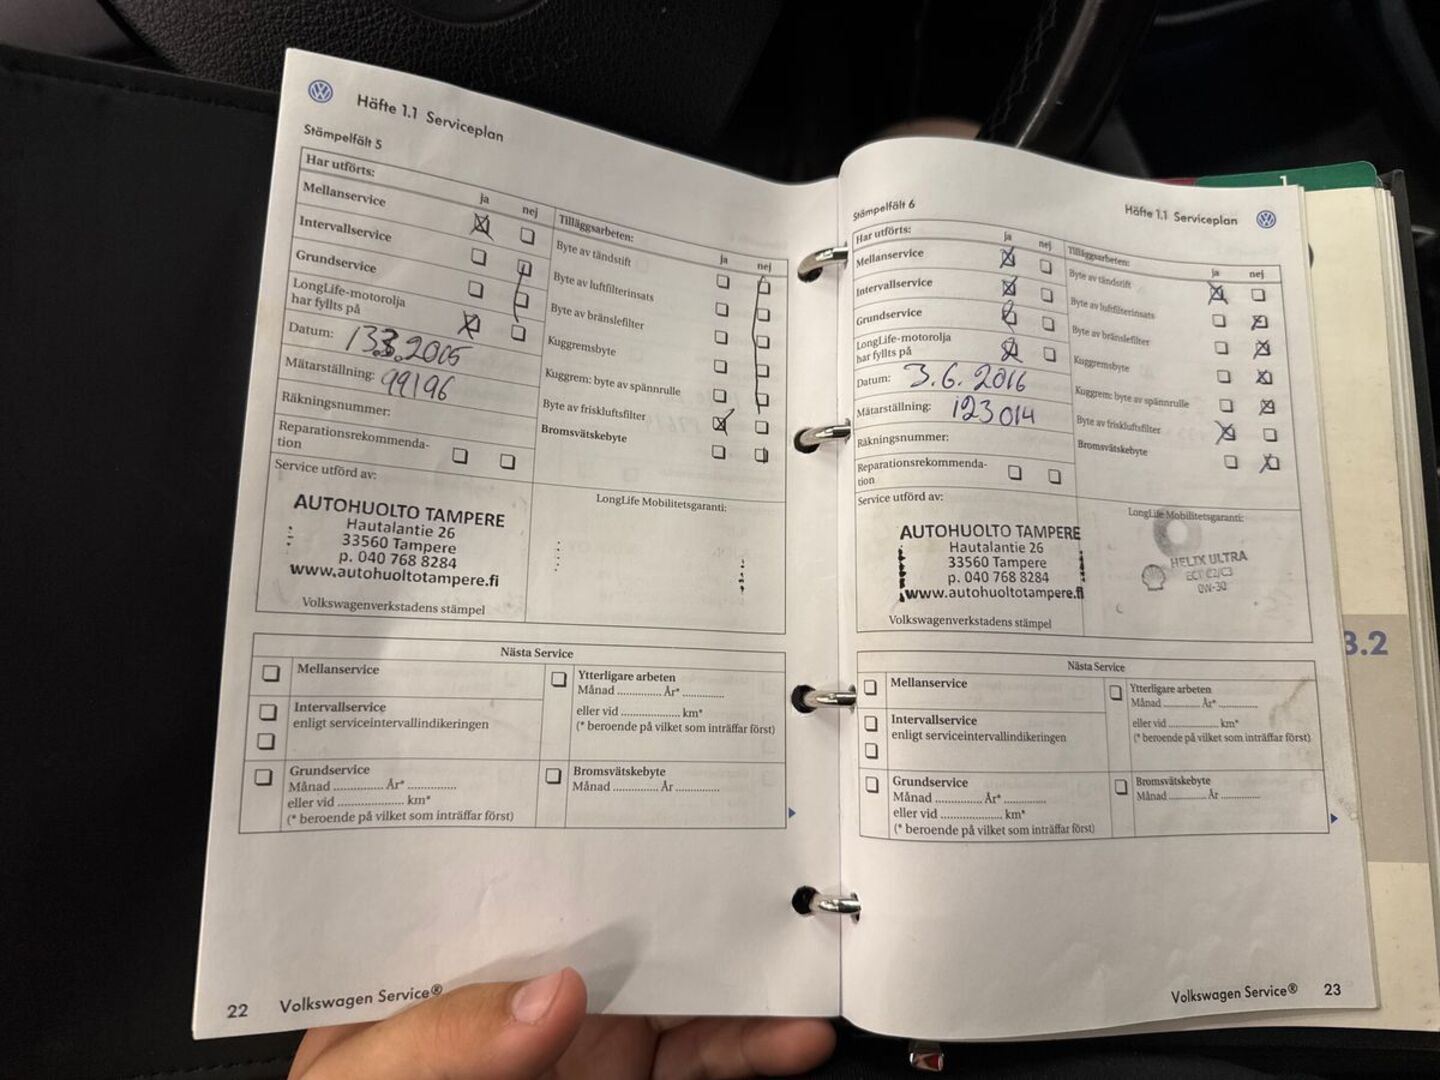 Häfte 1.1 Serviceplan
Stämpelfält 5
Har utförts:
ja nej
Mellanservice
Intervallservice
Grundservice
LongLife-motorolja
har fyllts på
Datum: 13.3.2005
Mätarställning: 99196
Räkningsnummer:
Reparationsrekommenda-
tion
Tilläggsarbeten:
ja nej
Byte av tändstift
Byte av luftfilterinsats
Byte av bränslefilter
Kuggremsbyte
Kuggrem: byte av spännrulle
Byte av friskluftsfilter
Bromsvätskebyte
Service utförd av:
AUTOHUOLTO TAMPERE
Hautalantie 26
33560 Tampere
p. 040 768 8284
www.autohuoltotampere.fi
Volkswagenverkstadens stämpel
LongLife Mobilitetsgaranti:
Nästa Service
Mellanservice
Intervallservice
enligt serviceintervallindikeringen
Grundservice
Månad ............... År* ...............
eller vid .................... km*
(* beroende på vilket som inträffar först)
Ytterligare arbeten
Månad ............. År* .............
eller vid .................. km*
(* beroende på vilket som inträffar först)
Bromsvätskebyte
Månad ............. År .............
22 Volkswagen Service®
Stämpelfält 6
Häfte 1.1 Serviceplan
Har utförts:
ja nej
Mellanservice
Intervallservice
Grundservice
LongLife-motorolja
har fyllts på
Datum: 3.6.2016
Mätarställning: 123014
Räkningsnummer:
Reparationsrekommenda-
tion
Tilläggsarbeten:
ja nej
Byte av tändstift
Byte av luftfilterinsats
Byte av bränslefilter
Kuggremsbyte
Kuggrem: byte av spännrulle
Byte av friskluftsfilter
Bromsvätskebyte
Service utförd av:
AUTOHUOLTO TAMPERE
Hautalantie 26
33560 Tampere
p. 040 768 8284
www.autohuoltotampere.fi
Volkswagenverkstadens stämpel
LongLife Mobilitetsgaranti:
HELIX ULTRA
ECT C2/C3
0W-30
Nästa Service
Mellanservice
Intervallservice
enligt serviceintervallindikeringen
Grundservice
Månad .............. År* .............
eller vid .................... km*
(* beroende på vilket som inträffar först)
Ytterligare arbeten
Månad ........... År* ...........
eller vid ................ km*
(* beroende på vilket som inträffar först)
Bromsvätskebyte
Månad ........... År ...........
Volkswagen Service® 23
1
3.2